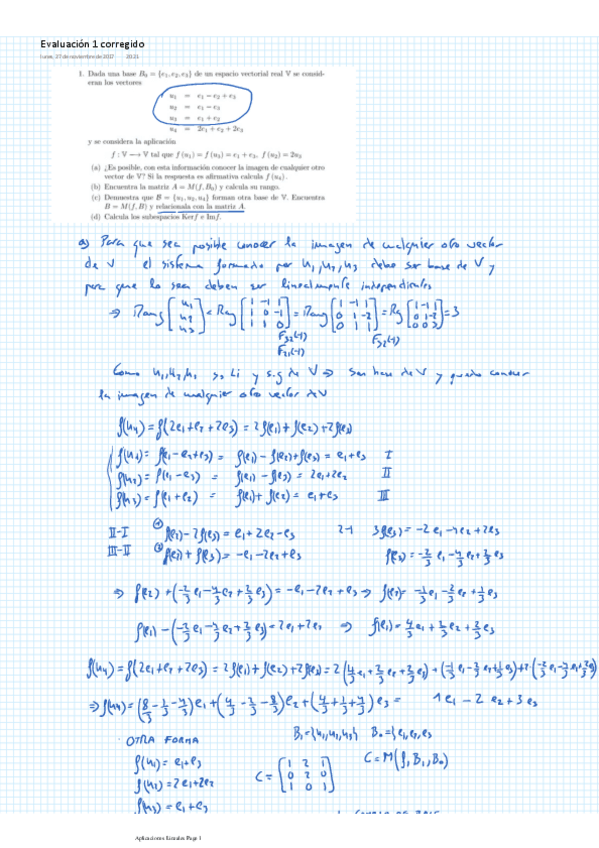 Evaluación 1 corregido
lunes, 27 de noviembre de 2017 20:21
1. Dada una base B₀ = {e₁, e₂, e₃} de un espacio vectorial real V se consid-
eran los vectores
u₁ = e₁ − e₂ + e₃
u₂ = e₁ − e₃
u₃ = e₁ + e₂
u₄ = 2e₁ + e₂ + 2e₃
y se considera la aplicación
f : V ⟶ V tal que f(u₁) = f(u₃) = e₁ + e₃, f(u₂) = 2u₃
(a) ¿Es posible, con esta información conocer la imagen de cualquier otro
vector de V? Si la respuesta es afirmativa calcula f(u₄).
(b) Encuentra la matriz A = M(f, B₀) y calcula su rango.
(c) Demuestra que B = {u₁, u₂, u₄} forman otra base de V. Encuentra
B = M(f, B) y relacionala con la matriz A.
(d) Calcula los subespacios Kerf e Imf.
a) Para que sea posible conocer la imagen de cualquier otro vector
de V el sistema formado por u₁, u₂, u₃ debe ser base de V y
para que lo sea deben ser linealmente independientes
⇒ Rang [u₁ u₂ u₃] = Rg [1 -1 1; 1 0 -1; 1 1 0] = Rang [1 -1 1; 0 1 -2; 0 1 1] = Rg [1 -1 1; 0 1 -2; 0 0 3] = 3
F₃₂(-1) F₃₂(-1)
F₂₁(-1)
Como u₁, u₂, u₃ so, Li y s.g de V ⇒ Son base de V y puedo conocer
la imagen de cualquier otro vector de V
f(u₄) = f(2e₁+e₂+2e₃) = 2f(e₁)+f(e₂)+2f(e₃)
f(u₁) = f(e₁-e₂+e₃) = f(e₁)-f(e₂)+f(e₃) = e₁+e₃ I
f(u₂) = f(e₁-e₃) = f(e₁)-f(e₃) = 2e₁+2e₂ II
f(u₃) = f(e₁+e₂) = f(e₁)+f(e₂) = e₁+e₃ III
II-I f(e₂)-2f(e₃) = e₁+2e₂-e₃ 2-1 3f(e₃) = -2e₁-4e₂+2e₃
III-II f(e₂)+f(e₃) = -e₁-2e₂+e₃ f(e₃) = -2/3 e₁ -4/3 e₂ +2/3 e₃
⇒ f(e₂) + (-2/3 e₁ -4/3 e₂ +2/3 e₃) = -e₁-2e₂+e₃ ⇒ f(e₂) = -1/3 e₁ -2/3 e₂ +1/3 e₃
f(e₁) - (-2/3 e₁ -4/3 e₂ +2/3 e₃) = 2e₁+2e₂ ⇒ f(e₁) = 4/3 e₁ +2/3 e₂ +2/3 e₃
f(u₄) = f(2e₁+e₂+2e₃) = 2f(e₁)+f(e₂)+2f(e₃) = 2(4/3 e₁ +2/3 e₂ +2/3 e₃) + (-1/3 e₁ -2/3 e₂ +1/3 e₃) + 2(-2/3 e₁ -4/3 e₂ +2/3 e₃)
⇒ f(u₄) = (8/3 -1/3 -4/3)e₁ + (4/3 -2/3 -8/3)e₂ + (4/3 +1/3 +4/3)e₃ = 1e₁ - 2e₂ + 3e₃
· OTRA FORMA B₁={u₁,u₂,u₃} B₀={e₁,e₂,e₃}
f(u₁) = e₁+e₃
f(u₂) = 2e₁+2e₂ C = [1 2 1; 0 2 0; 1 0 1] C = M(f, B₁, B₀)
f(u₃) = e₁+e₃
Aplicaciones lineales Page 1